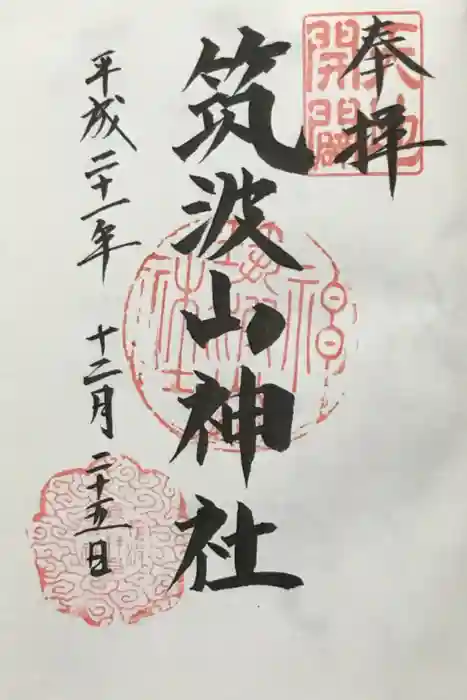 奉拝
天地開闢
筑波山神社
平成二十一年十二月二十五日